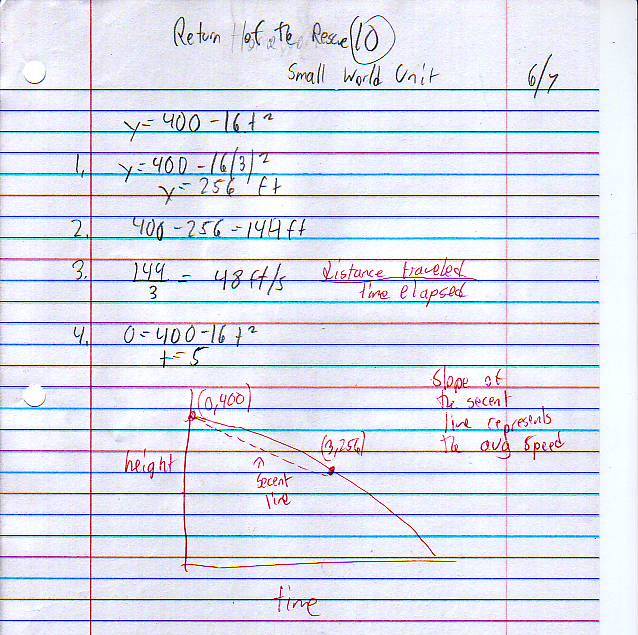 Return of the Rescue 10
Small World Unit
6/7
y = 400 - 16t²
1. y = 400 - 16(3)²
y = 256 ft
2. 400 - 256 = 144 ft
3. 144/3 = 48 ft/s distance traveled / time elapsed
4. 0 = 400 - 16t²
t = 5
(0,400)
Slope of
the secent
line represents
the avg speed
(3,256)
height
secent
line
time